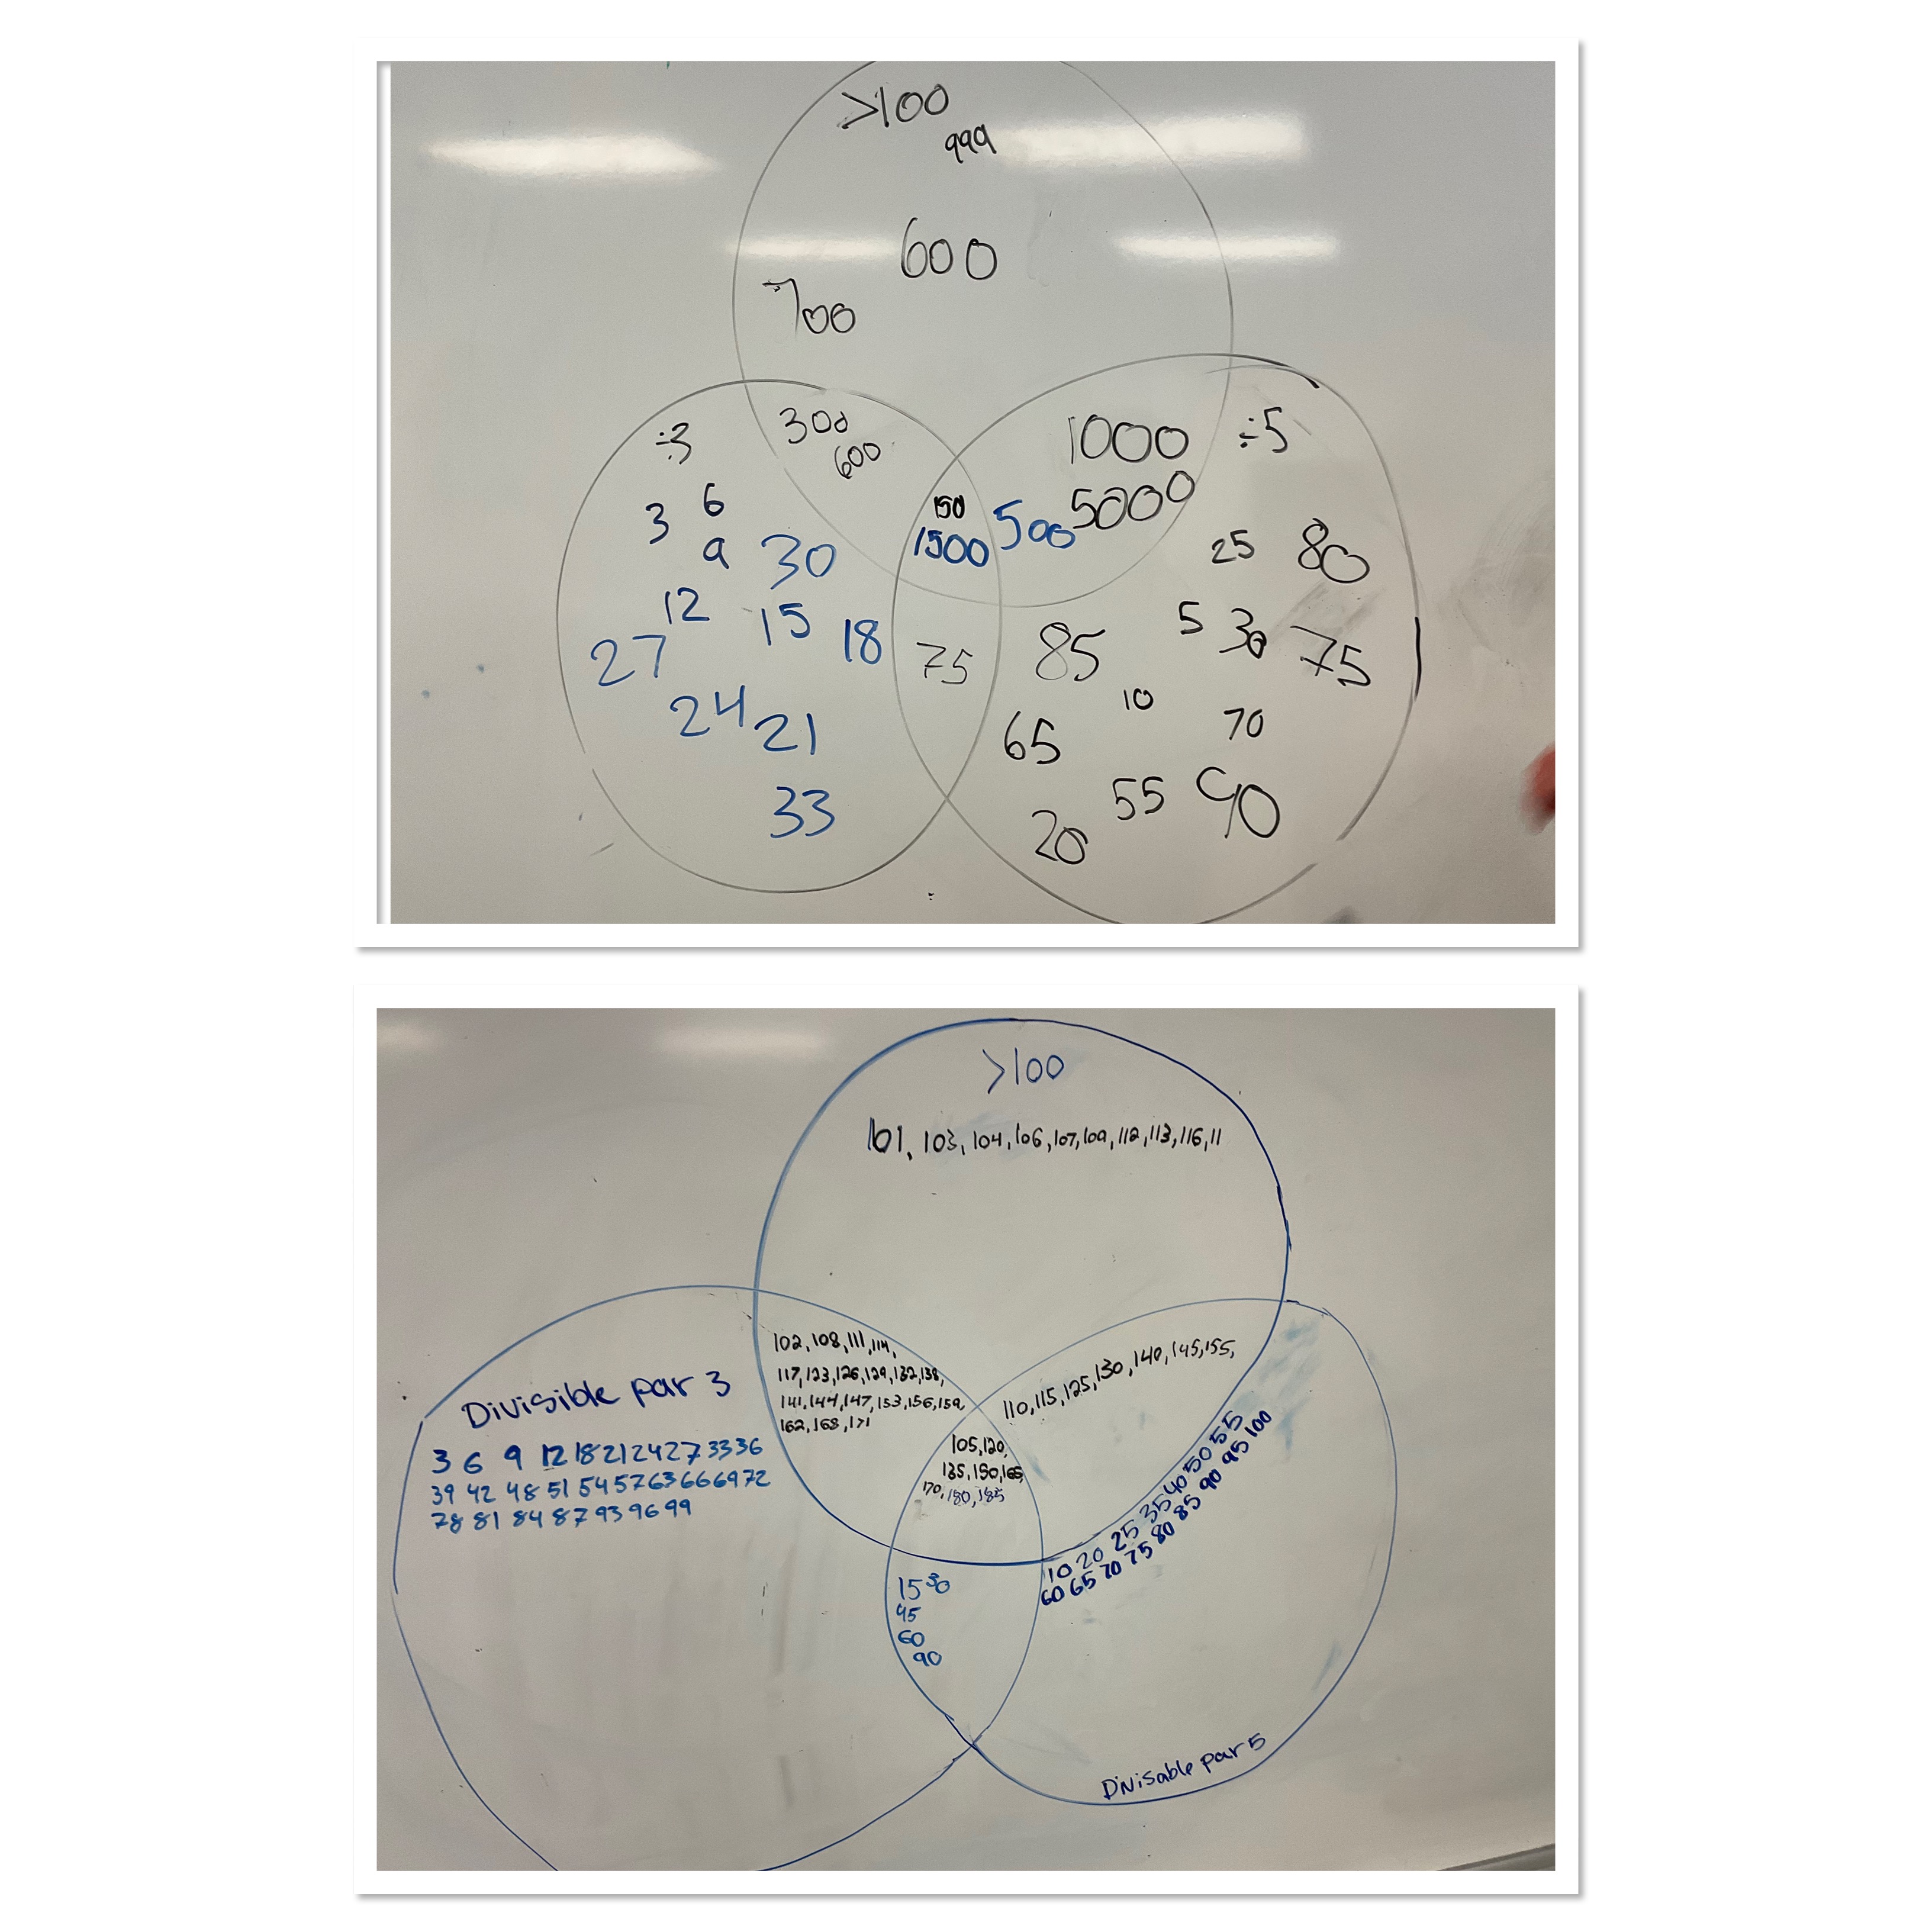 >100
999
600
700
÷3
300
600
3 6
9 30
12 15 18
27
24 21
33
150
1500
75
1000
500 5000
÷5
25 80
5 30 75
85
10
65 70
55 90
20
>100
101, 103, 104, 106, 107, 109, 112, 113, 116, 11
Divisible par 3
3 6 9 12 18 21 24 27 33 36
39 42 48 51 54 57 63 66 69 72
78 81 84 87 93 96 99
102, 108, 111, 114,
117, 123, 126, 129, 132, 138,
141, 144, 147, 153, 156, 159,
162, 168, 171
110, 115, 125, 130, 140, 145, 155,
105, 120,
135, 150, 165,
170, 180, 185
10 20 25 35 40 50 55
60 65 70 75 80 85 90 95 100
15 30
45
60
90
Divisable par 5